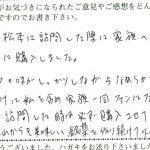 がお気づきになられたご意見やご感想をどん
ですのでお書き下さい。
松本に訪問した際に家族の
に購入しました。
の味が、しっかりしながらなめらか
けに私を含め家族一同ファンにな
訪問した時は必ず購入させて
れからも美味しい銘菓を作り続けて
うございました。ハガキをお送り下さいました